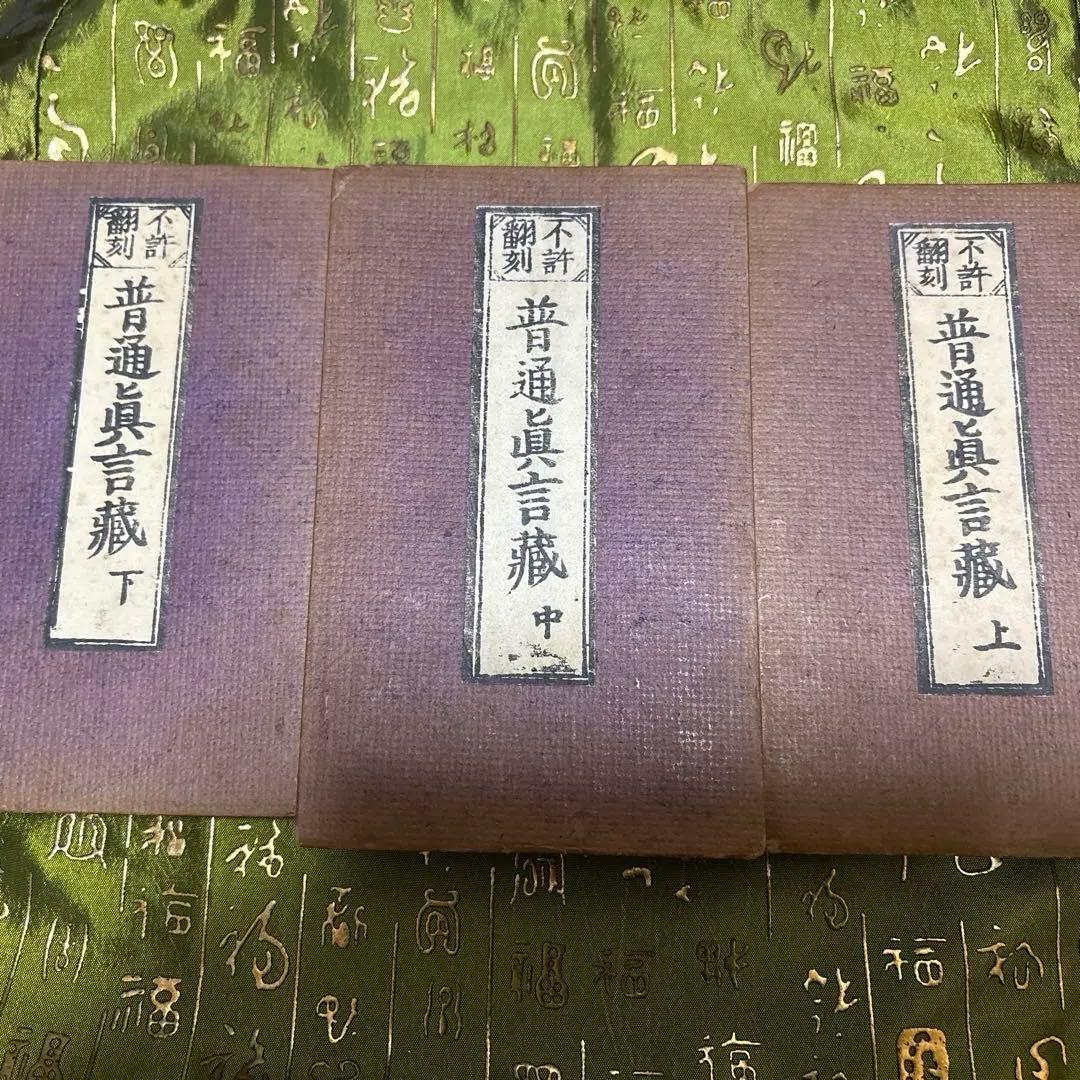 不許
翻刻
普通眞言藏
上
不許
翻刻
普通眞言藏
中
不許
翻刻
普通眞言藏
下